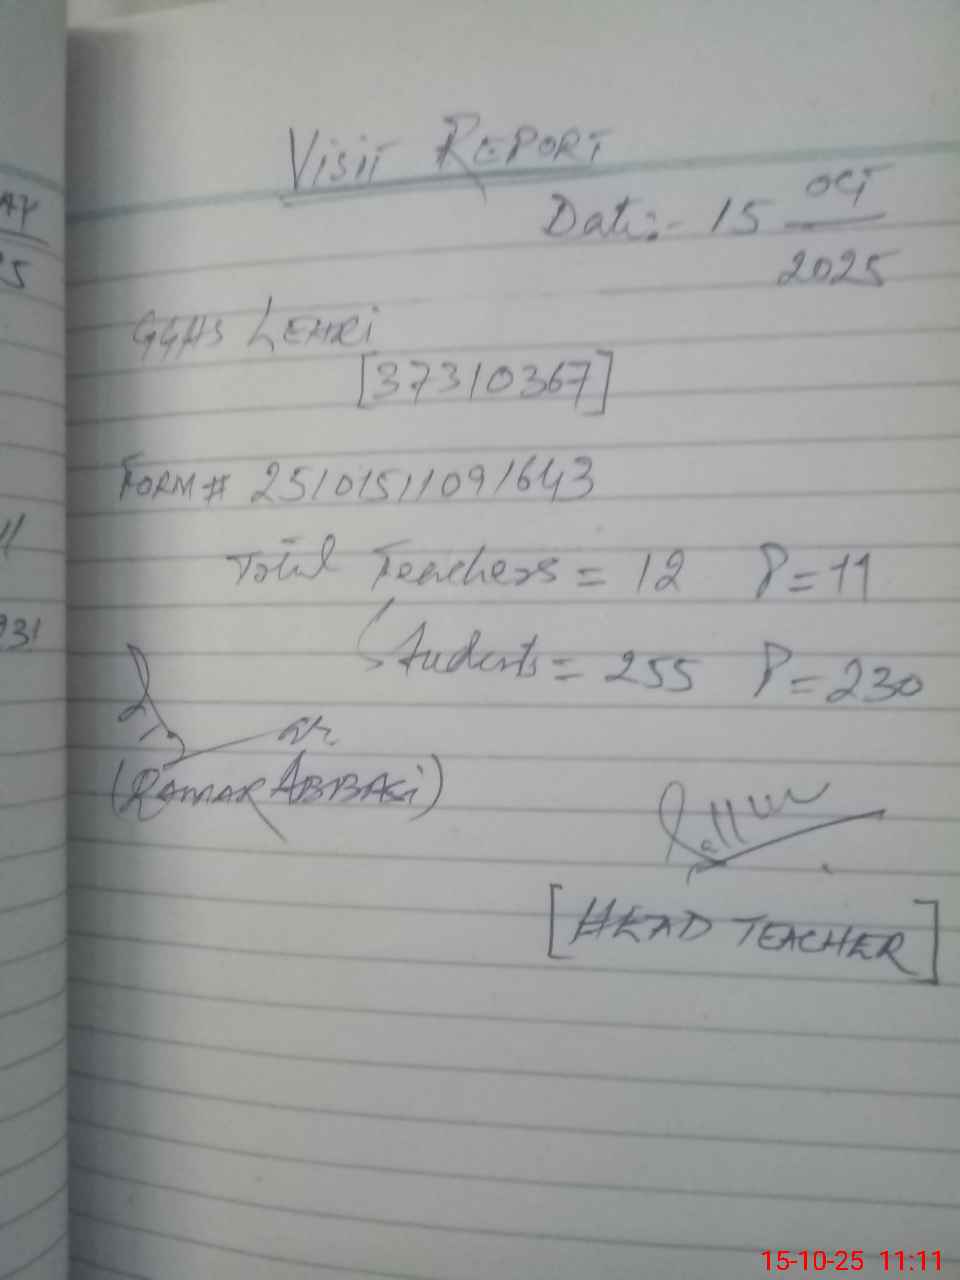 VISIT REPORT
Date:- 15 OCT
2025
GGHS LEHRI
[37310367]
FORM # 25101511091643
Total Teachers = 12 P = 11
Students = 255 P = 230
(QAMAR ABBASI)
[HEAD TEACHER]
15-10-25 11:11